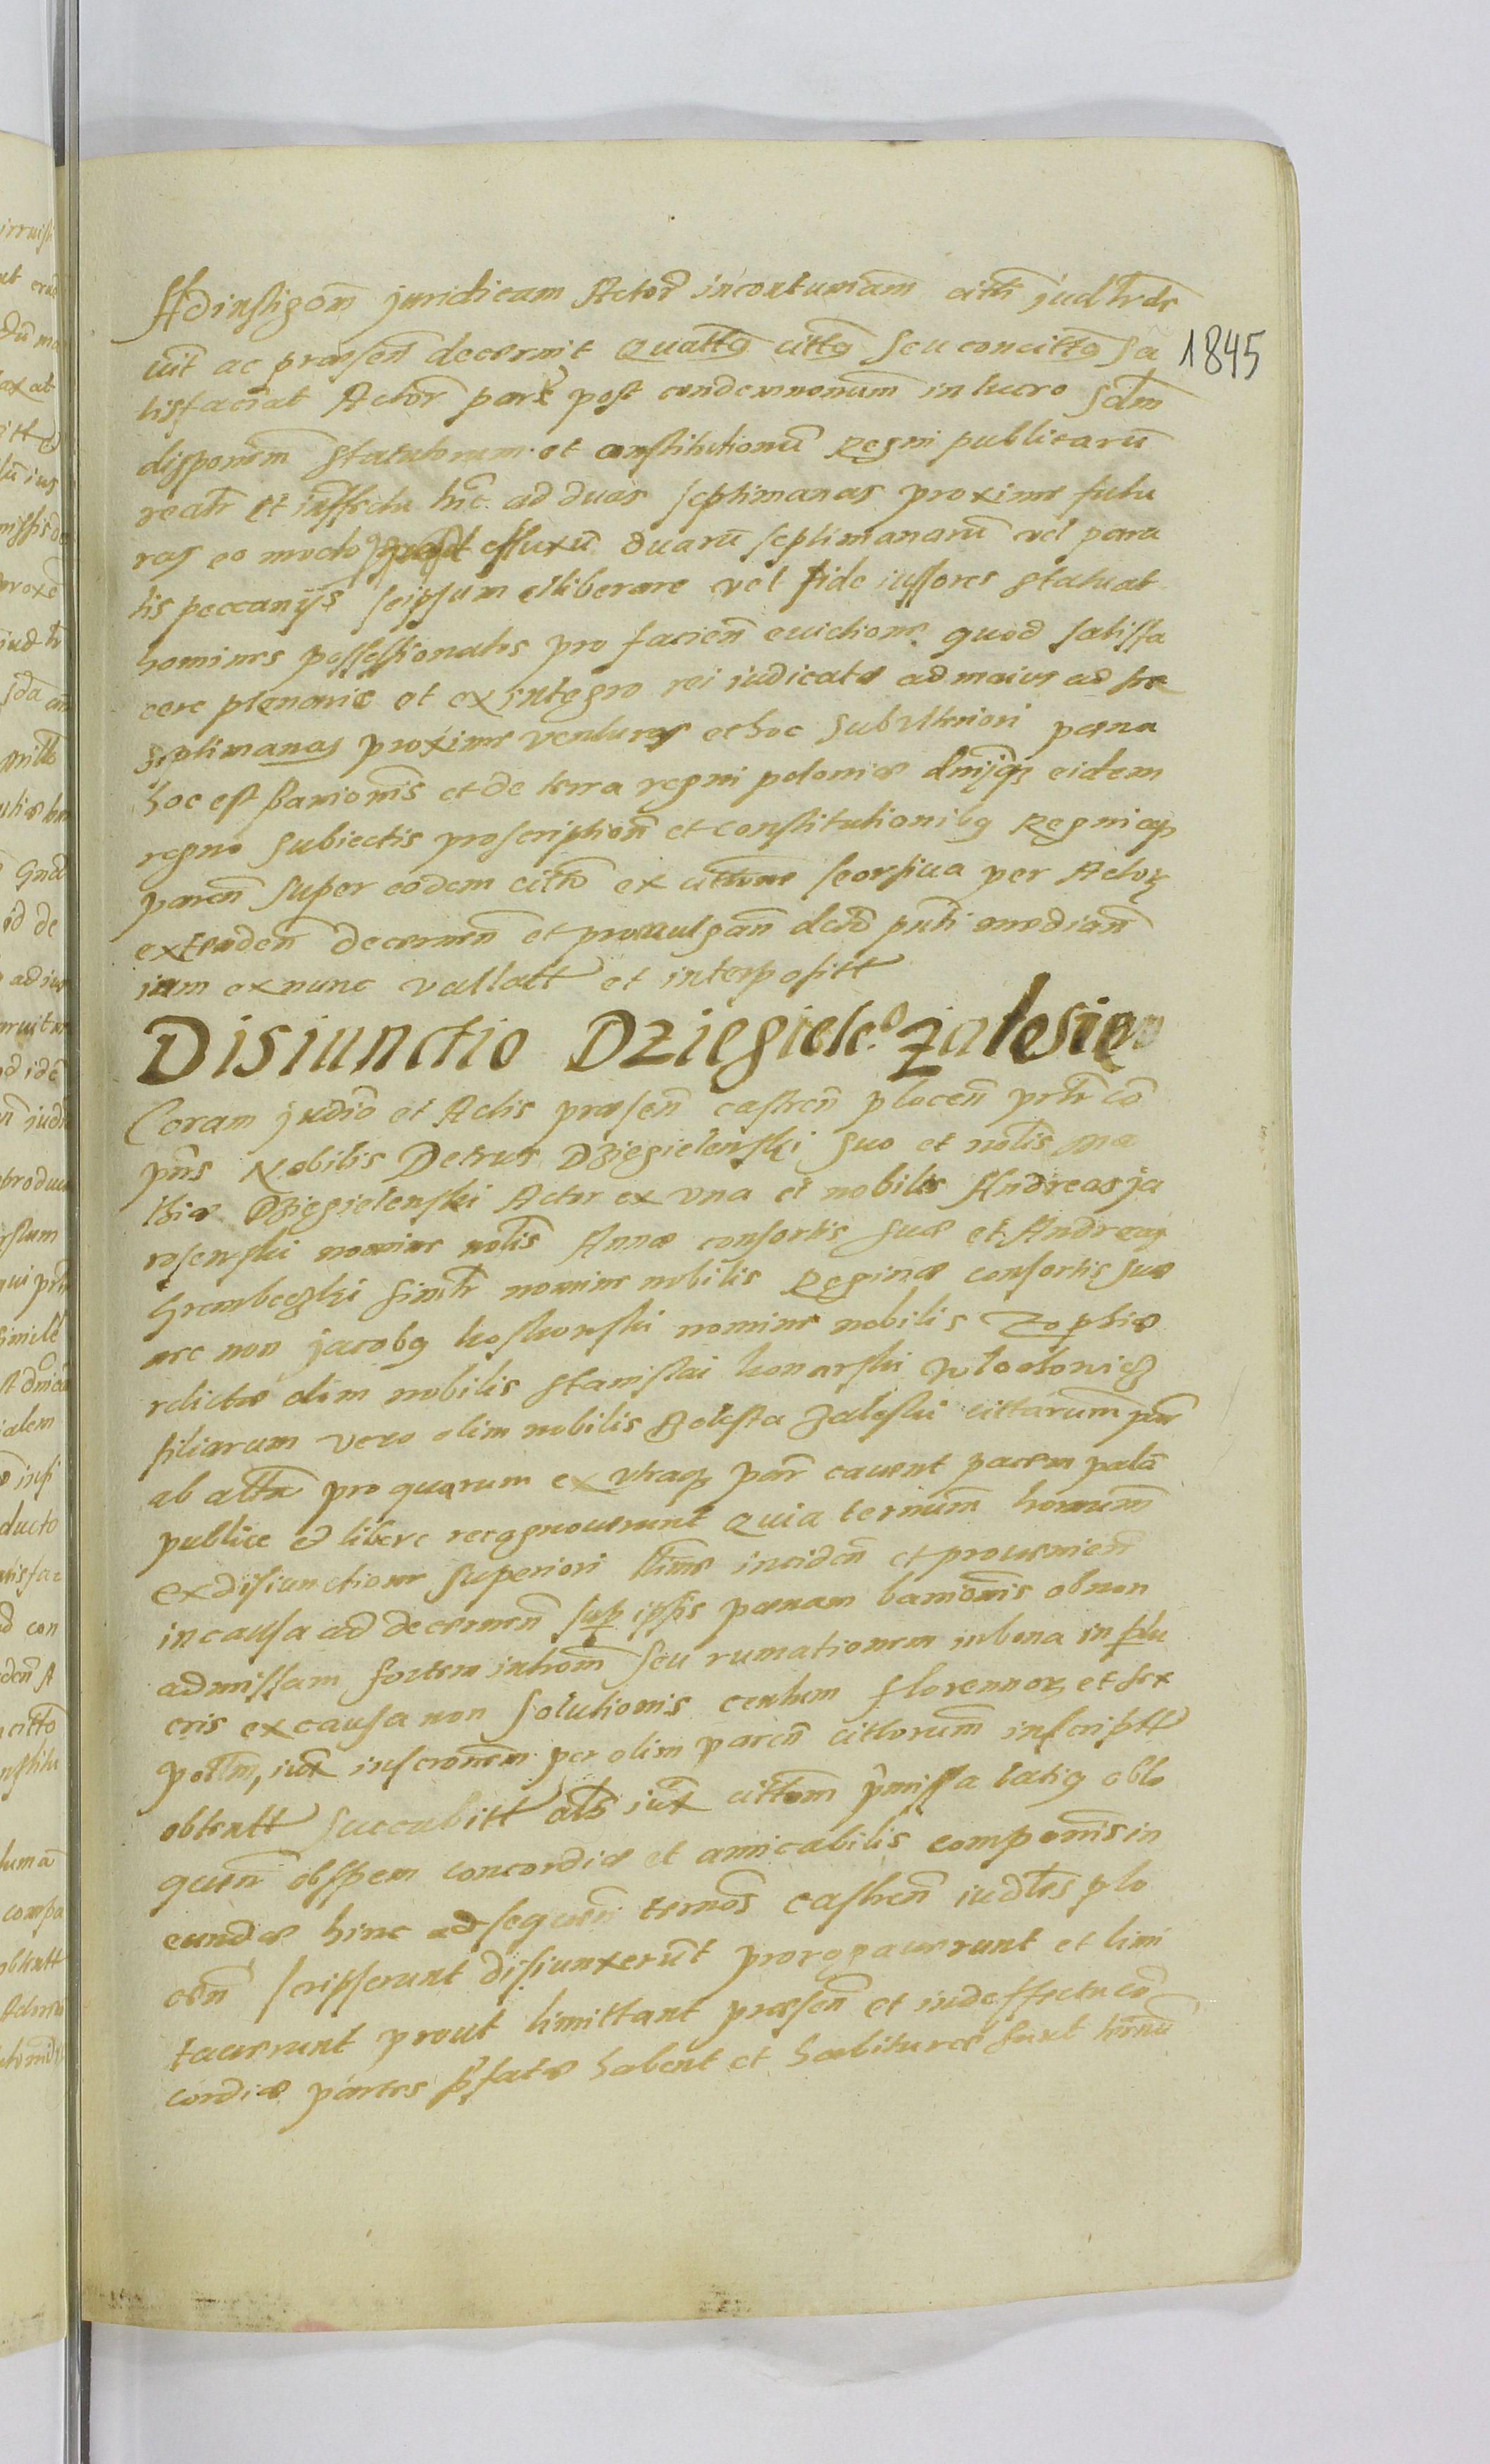 Ad instigom̃ juridicam Actor̃ in contumam̃ citti judĩr dr
1845
uit ac præsen̄ decernit Quattg̃ cittg̃ seu concittg̃ sa
tisfaciat Actor̃ parti post condemnonum̃ in lucro sdm̃
disponem̃ statutorum et constitutionũ Regni publicarũ
reatr̃ et in effectu hinc ad duas septimanas proxime futu
ras eo modo effluxũ duarũ septimanarũ vel para
tis peccunijs seipsum elliberare vel fide iussores statuat
homines possessionatos pro facien̄ euictione quod satisfa
cere plenarie et ex integro rei iudicatæ ad maius ad
septimanas proxime venturas et hoc sub vlteriori pæna
hoc est banionis̃ et de terra regni poloniæ dnijsq eidem
regno subiectis proscription̄ et constitutionibg Regni
paren̄ super eodem citto ex cittone seorsiua per Actor
extenden̄ decernen̄ et promulgan̄ median̄
ium ex nunc vallatt et interposit
Disiunctio Dziegielc.o Zalesieo
Coram judio et Actis præsen̄ castren̄ plocen̄ prtr̃ cõ
pñs Nobilis Petrus Dziegielenski suo et nobis̃ Ma
thiæ Dziegielenski Actor ex vna et nobiles Andreas Ja
rosenski nomine nolis̃ Annæ consortis suæ et Andreas
Grembeczki simr̃ nomine nobilis Reginæ consortis suæ
nec non jacobg koskowski nomine nobilis Zophiæ
relictæ olim nobilis Stanislai konarski
filiarum vero olim nobilis Zaleski cittarum̃ par
ab altã pro quarum ex vtraq par̃ cauent pacem palã
publice et libere recognouerunt Quia ternum̃ hornum̃
ex disiunctione superiori inciden̄ et prouenien̄
in causa ad decernen̄ sup ipsis pænam banionis̃ ob non
admissam fortem introm̃ seu rumationem in bona in
cris ex causa non solutionis centum florennor et sex
pollm̃, iux̃ inscronem̃ per olim paren̄ cittorum̃ inscriptt
obtentt succubitt als̃ iux̃ cittom̃ p̃missa latig oblo
quen̄ ob spem concordiæ et amicabilis componis̃ in
eundæ hinc ad sequen̄ ternos̃ castren̄ iudles̃ plo
cen̄ scripserunt disiunxerũt prorogauerunt et limi
tauerunt prout limittant præsen̄ et inde effectu cõ
cordiæ partes p̃fatæ habent et habituræ sunt ternũ